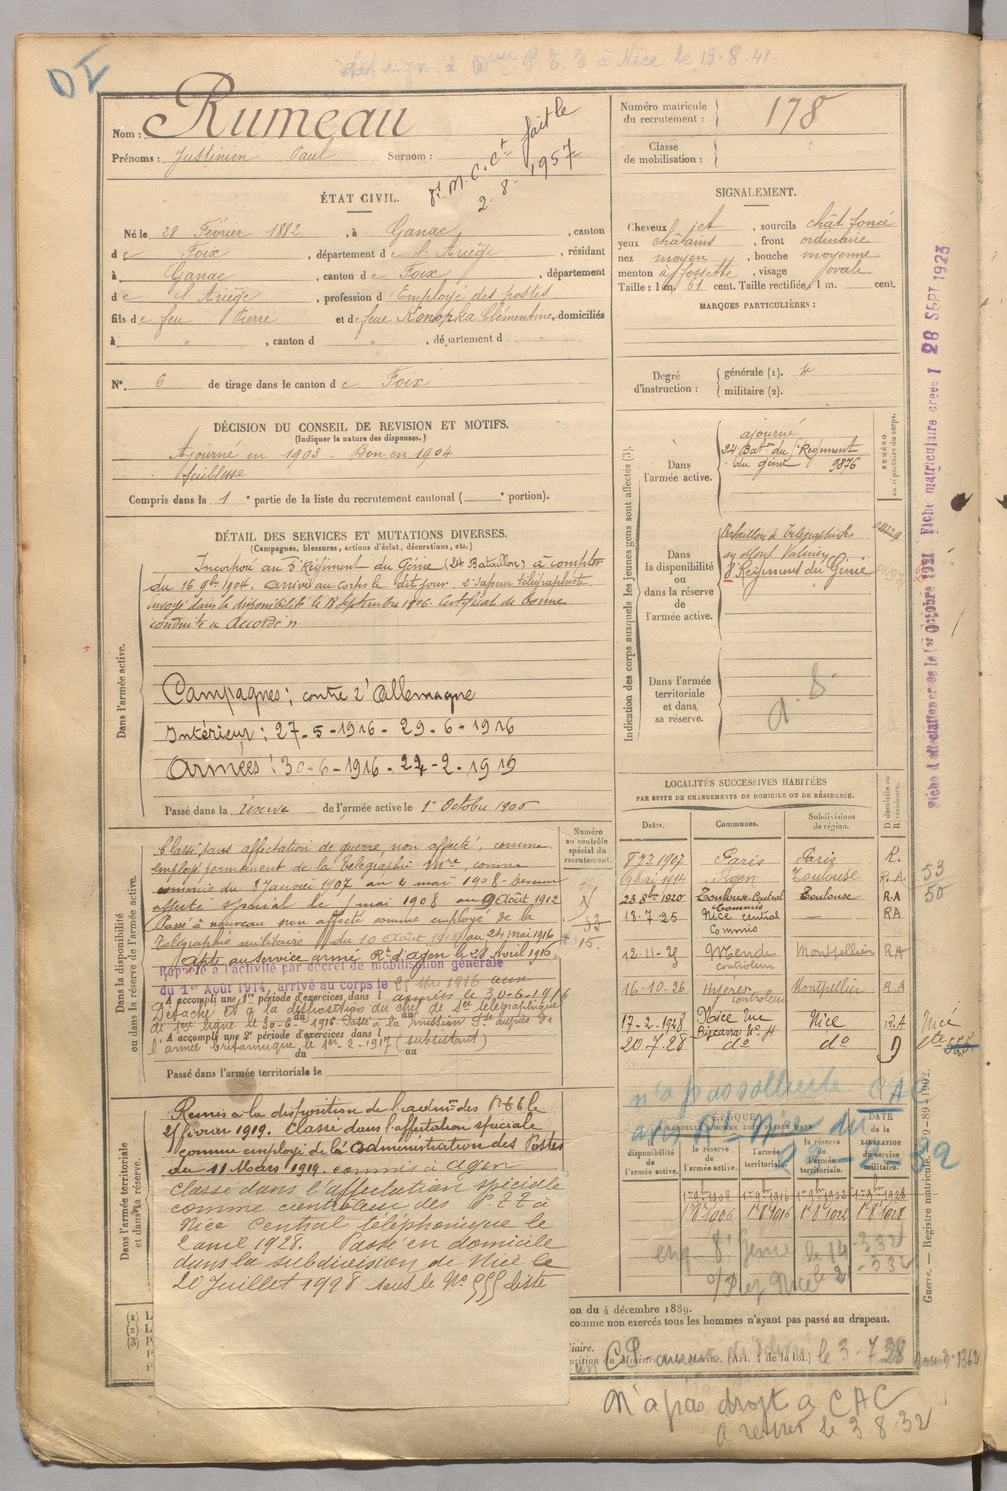 DI
à Nice le 19-8-41
Nom : Rumeau
Prénoms : Justinien Paul Surnom :
fait le
2-8-1957
Numéro matricule du recrutement : 178
Classe de mobilisation :
ÉTAT CIVIL.
Né le 28 Février 1882, à Ganac, canton
de Foix, département de l'Ariège, résidant
à Ganac, canton de Foix, département
de l'Ariège, profession d'Employé des postes
fils de feu Pierre et de feue Konopka Clémentine, domiciliés
à " , canton d " , département d
N° 6 de tirage dans le canton de Foix
SIGNALEMENT.
Cheveux jet, sourcils chât foncé
yeux châtains, front ordinaire
nez moyen, bouche moyenne
menton à fossette, visage ovale
Taille : 1 m. 61 cent. Taille rectifiée : 1 m. cent.
MARQUES PARTICULIÈRES :
Degré d'instruction : générale (1). 4
militaire (2).
DÉCISION DU CONSEIL DE REVISION ET MOTIFS.
(Indiquer la nature des dispenses.)
Ajourné en 1903 - Bon en 1904
faiblesse
Compris dans la 1e partie de la liste du recrutement cantonal ( e portion).
DÉTAIL DES SERVICES ET MUTATIONS DIVERSES.
(Campagnes, blessures, actions d'éclat, décorations, etc.)
Dans l'armée active.
Incorporé au 5e Régiment du Génie (24 Bataillon) à compter
du 16 9bre 1904, arrivé au corps le dit jour. 2e sapeur télégraphiste
envoyé dans la disponibilité le 18 Septembre 1906. Certificat de bonne
conduite "Accordé".
Campagnes : contre l'Allemagne
Intérieur : 27-5-1916 - 29-6-1916
Armées : 30-6-1916 - 24-2-1919
Passé dans la réserve de l'armée active le 1er Octobre
Indication des corps auxquels les jeunes gens sont affectés (3).
Dans l'armée active.
ajourné
24 Baton du Régiment
du génie 9876
NUMÉRO au répertoire du corps.
Dans la disponibilité ou dans la réserve de l'armée active.
Bataillon de Télégraphistes
au Mont Valérien
8e Régiment du Génie
Dans l'armée territoriale et dans sa réserve.
Fiche d'affectation créée le 1er Octobre 1921 Fiche matriculaire créée 28 SEPT 1923
LOCALITÉS SUCCESSIVES HABITÉES
PAR SUITE DE CHANGEMENTS DE DOMICILE OU DE RÉSIDENCE.
Dates. Communes. Subdivisions de région. D domicile ou R résidence.
1907 Paris Paris R.
9 Mai 1914 Agen Toulouse R.A.
23 8bre 1920 Toulouse-Central Commis Toulouse R.A
13-7-25 Nice central Commis — RA
12-11-25 Mende controleur Montpellier RA
16-10-26 Hyères controleur Montpellier R.A
17-2-1928 Nice Rue Nice R.A
20.7.28 do do D
53
50
Nice
Dans la disponibilité ou dans la réserve de l'armée active.
Numéro au contrôle spécial du recrutement.
Classé sans affectation de guerre, non affecté, comme
employé permanent de la Télégraphie Mre, comme
commis du 8 Janvier 1907 au 4 mai 1908. Devenu
affecté spécial le mai 1908 au 9 Août 1912
Passé à nouveau non affecté comme employé de la
Télégraphie militaire du 10 Août au 24 mai 1916
Apte au service armé Rt d'Agen le 28 Avril 1916
Rappelé à l'activité par décret de mobilisation générale
du 1er Août 1914, arrivé au corps le Mai 1916 aux
A accompli une 1re période d'exercices dans l armées le 30-6-1916
Détaché et à la disposition du chef de Sce télégraphique
de 1ere ligne le 30-6-1916. Passé à la mission Fse auprès de
A accompli une 2e période d'exercices dans l
l'armée britannique le 1er-2-1917 (subsistant)
du au
Passé dans l'armée territoriale le
Dans l'armée territoriale et dans sa réserve.
Remis à la disposition de l'admon des PTT le
février 1919. Classé dans l'affectation spéciale
comme employé de l'Administration des Postes
du 11 Mars 1914. commis à Agen
Classé dans l'affectation spéciale
comme controleur des P.T.T à
Nice Central téléphonique le
2 avril 1928. Passé en domicile
dans la subdivision de Nice le
20 Juillet 1928 sous le No 555 liste
n'a pas sollicité CAC
avis Rt Nice du
ÉPOQUE
DATE de LIBÉRATION du service militaire.
disponibilité de l'armée active. la réserve de l'armée active. l'armée territoriale. la réserve de l'armée territoriale.
8e Génie le
Nice
on du 4 décembre 1889.
comme non exercés tous les hommes n'ayant pas passé au drapeau.
(Art. 4 de la loi.) le 3-7-38
(1) (2) (3)
N'a pas droit à CAC
le 3 8 32
Guerre. — Registre matricule. 1902.